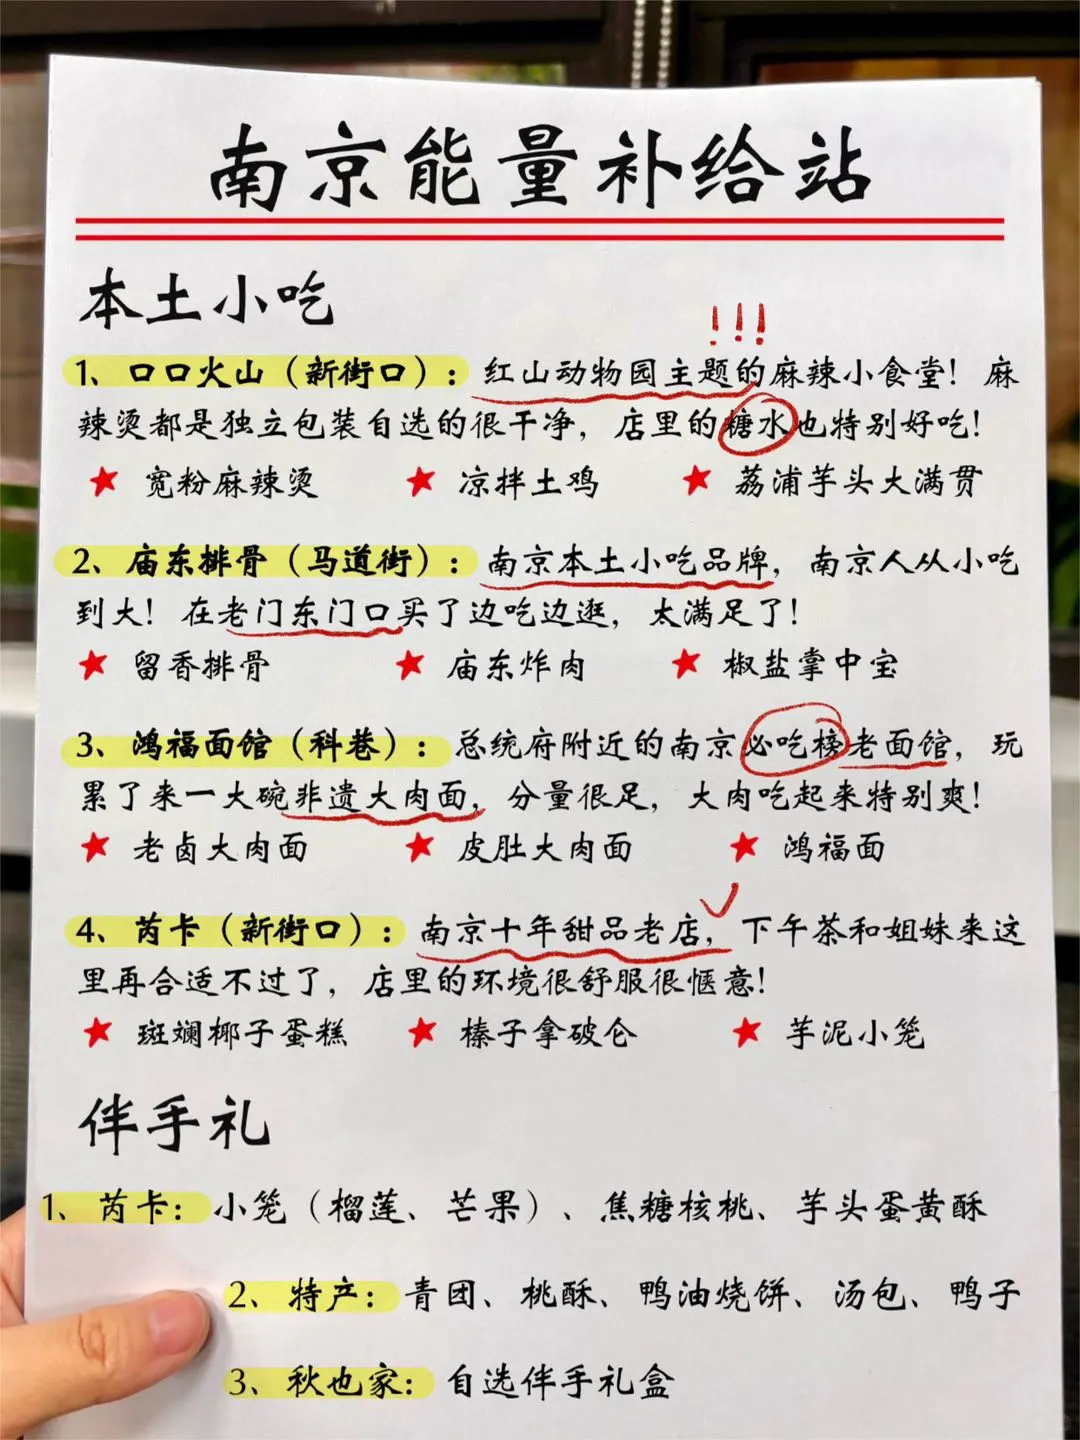 南京能量补给站
本土小吃
!!!
1、口口火山（新街口）：红山动物园主题的麻辣小食堂！麻
辣烫都是独立包装自选的很干净，店里的糖水也特别好吃！
★ 宽粉麻辣烫 ★ 凉拌土鸡 ★ 荔浦芋头大满贯
2、庙东排骨（马道街）：南京本土小吃品牌，南京人从小吃
到大！在老门东门口买了边吃边逛，太满足了！
★ 留香排骨 ★ 庙东炸肉 ★ 椒盐掌中宝
3、鸿福面馆（科巷）：总统府附近的南京必吃榜老面馆，玩
累了来一大碗非遗大肉面，分量很足，大肉吃起来特别爽！
★ 老卤大肉面 ★ 皮肚大肉面 ★ 鸿福面
4、芮卡（新街口）：南京十年甜品老店，下午茶和姐妹来这
里再合适不过了，店里的环境很舒服很惬意！
★ 斑斓椰子蛋糕 ★ 榛子拿破仑 ★ 芋泥小笼
伴手礼
1、芮卡：小笼（榴莲、芒果）、焦糖核桃、芋头蛋黄酥
2、特产：青团、桃酥、鸭油烧饼、汤包、鸭子
3、秋也家：自选伴手礼盒